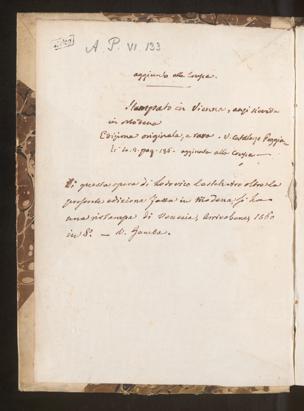 A. P. VI 133
aggiunto alla Crusca.
Stampato in Vienna, anzi
in Modena
Edizione originale, e rara. V. Catalogo Poggia-
li to. 2. pag. 136. aggiunto alla Crusca
Di questa opera di Lodovico Castelvetro oltre la
presente edizione fatta in Modena si ha
una ristampa di Venezia, Arrivabene, 1560
in 8º. — V. Gamba.